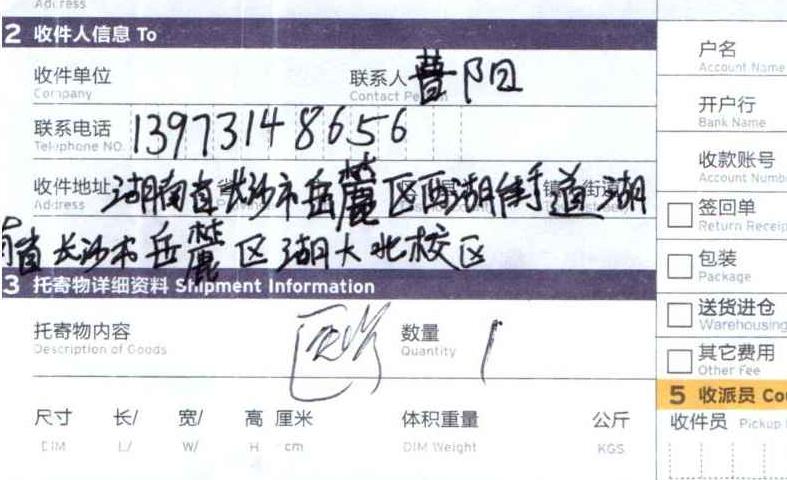 Address
2 收件人信息 To
收件单位
Company
联系人 曹阳
Contact Person
联系电话 13973148656
Telephone NO.
收件地址 湖南省长沙市岳麓区西湖街道湖
Address
南省长沙市岳麓区湖大北校区
3 托寄物详细资料 Shipment Information
托寄物内容
Description of Goods
数量 1
Quantity
尺寸 长/ 宽/ 高 厘米 体积重量 公斤
DIM L/ W/ H cm DIM Weight KGS
户名
Account Name
开户行
Bank Name
收款账号
Account Numb
签回单
Return Receip
包装
Package
送货进仓
Warehousing
其它费用
Other Fee
5 收派员 Cou
收件员 Pickup